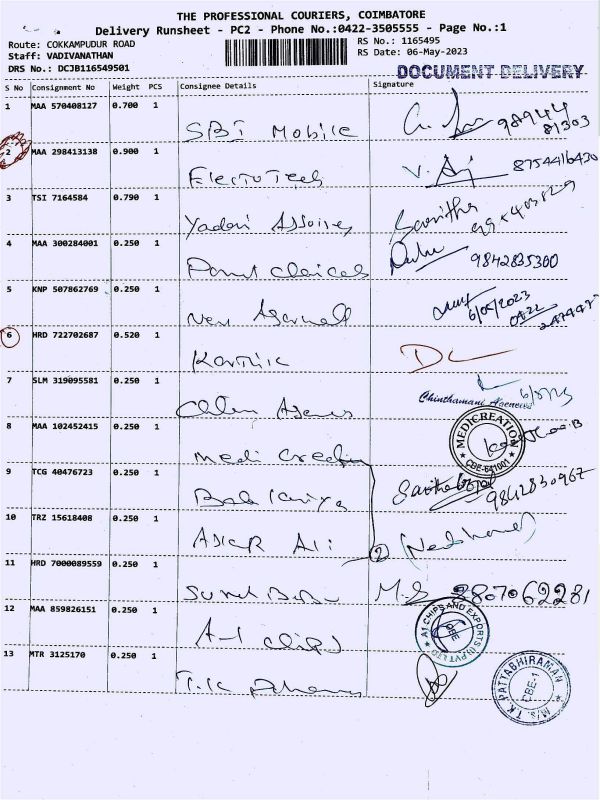 THE PROFESSIONAL COURIERS, COIMBATORE
Delivery Runsheet - PC2 - Phone No.:0422-3505555 - Page No.:1
Route: COKKAMPUDUR ROAD
Staff: VADIVANATHAN
DRS No.: DCJB116549501
RS No.: 1165495
RS Date: 06-May-2023
DOCUMENT DELIVERY
S No Consignment No Weight PCS Consignee Details Signature
1 MAA 570408127 0.700 1 SBI Mobile 98944
81303
2 MAA 298413138 0.900 1 Electro Tech 8754416430
3 TSI 7164584 0.790 1 Yadavi Savitha
4 MAA 300284001 0.250 1 9842835300
5 KNP 507862769 0.250 1 New Agarwall 6/05/2023
0422
6 HRD 722702687 0.520 1 Karthik
7 SLM 319095581 0.250 1 Chinthamani Agencies
8 MAA 102452415 0.250 1 Medi Creation MEDICREATION CBE-641001
9 TCG 40476723 0.250 1 9842830967
10 TRZ 15618408 0.250 1 ASKAR Ali 2
11 HRD 7000089559 0.250 1 M.S 2807062281
12 MAA 859826151 0.250 1 A-1 chips A1 CHIPS AND EXPORTS (I) PVT LTD CBE
13 MTR 3125170 0.250 1 T.K M/s. T.K. PATTABHIRAMAN CBE-1